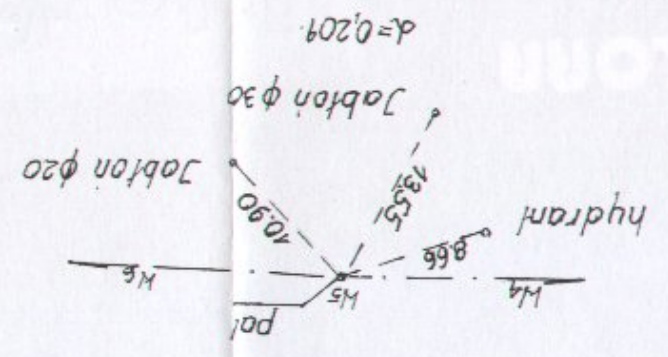 pal
W4 W5 W6
hydrant 8.66
13.55
10.90
Jabłoń ϕ20
Jabłoń ϕ30
d=0,209